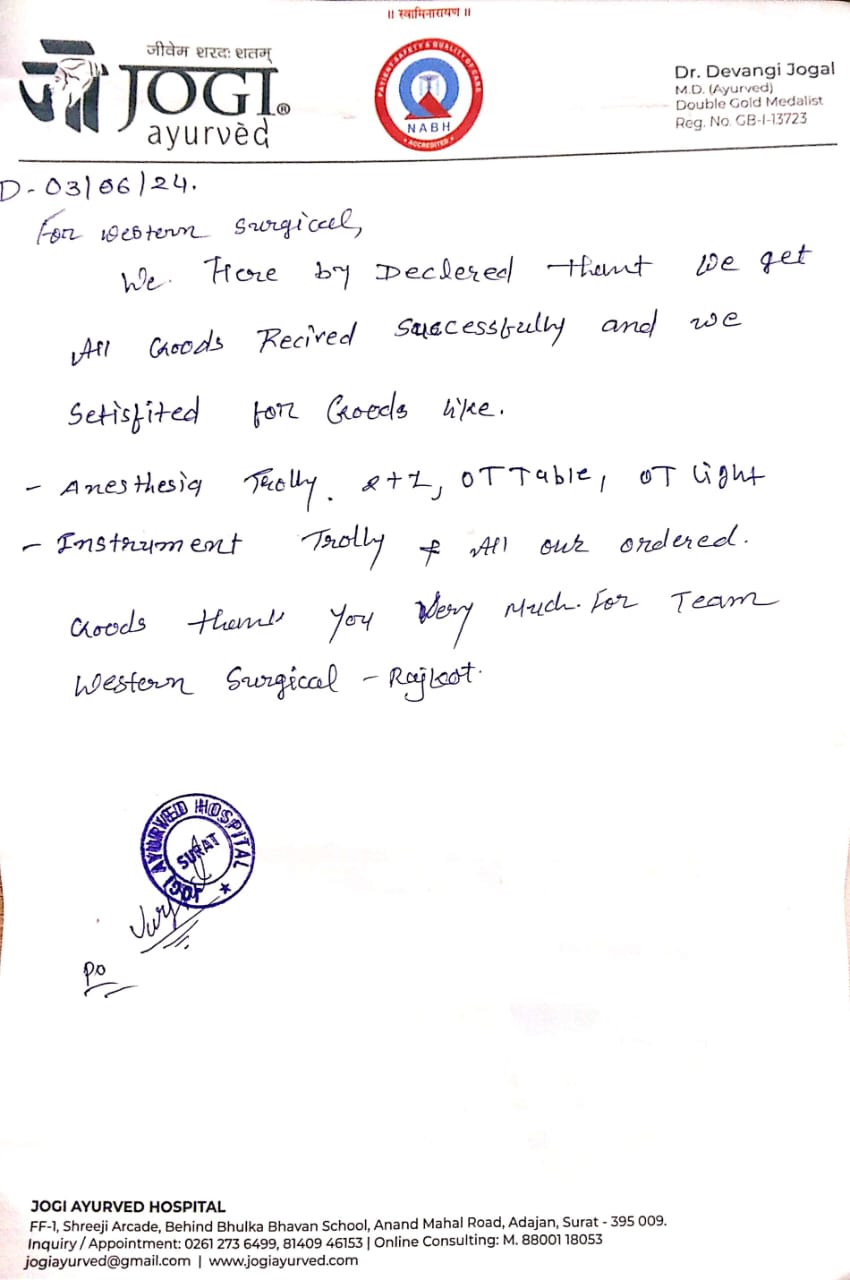 ॥ स्वामिनारायण ॥
जीवेम शरदः शतम्
जी JOGI®
ayurvèd
PATIENT SAFETY & QUALITY OF CARE
NABH
ACCREDITED
Dr. Devangi Jogal
M.D. (Ayurved)
Double Gold Medalist
Reg. No. GB-I-13723
D-03/06/24.
For Western Surgical,
We. Here by Declered thant we get
All Goods Recived Successfully and we
Setisfited for Goods like.
- Anesthesia Trolly. OT Table, OT light
- Instrument Trolly & All our ordered.
Goods thank you Very Much. For Team
Western Surgical - Rajkot.
JOGI AYURVED HOSPITAL
SURAT
PO
JOGI AYURVED HOSPITAL
FF-1, Shreeji Arcade, Behind Bhulka Bhavan School, Anand Mahal Road, Adajan, Surat - 395 009.
Inquiry / Appointment: 0261 273 6499, 81409 46153 | Online Consulting: M. 88001 18053
jogiayurved@gmail.com | www.jogiayurved.com